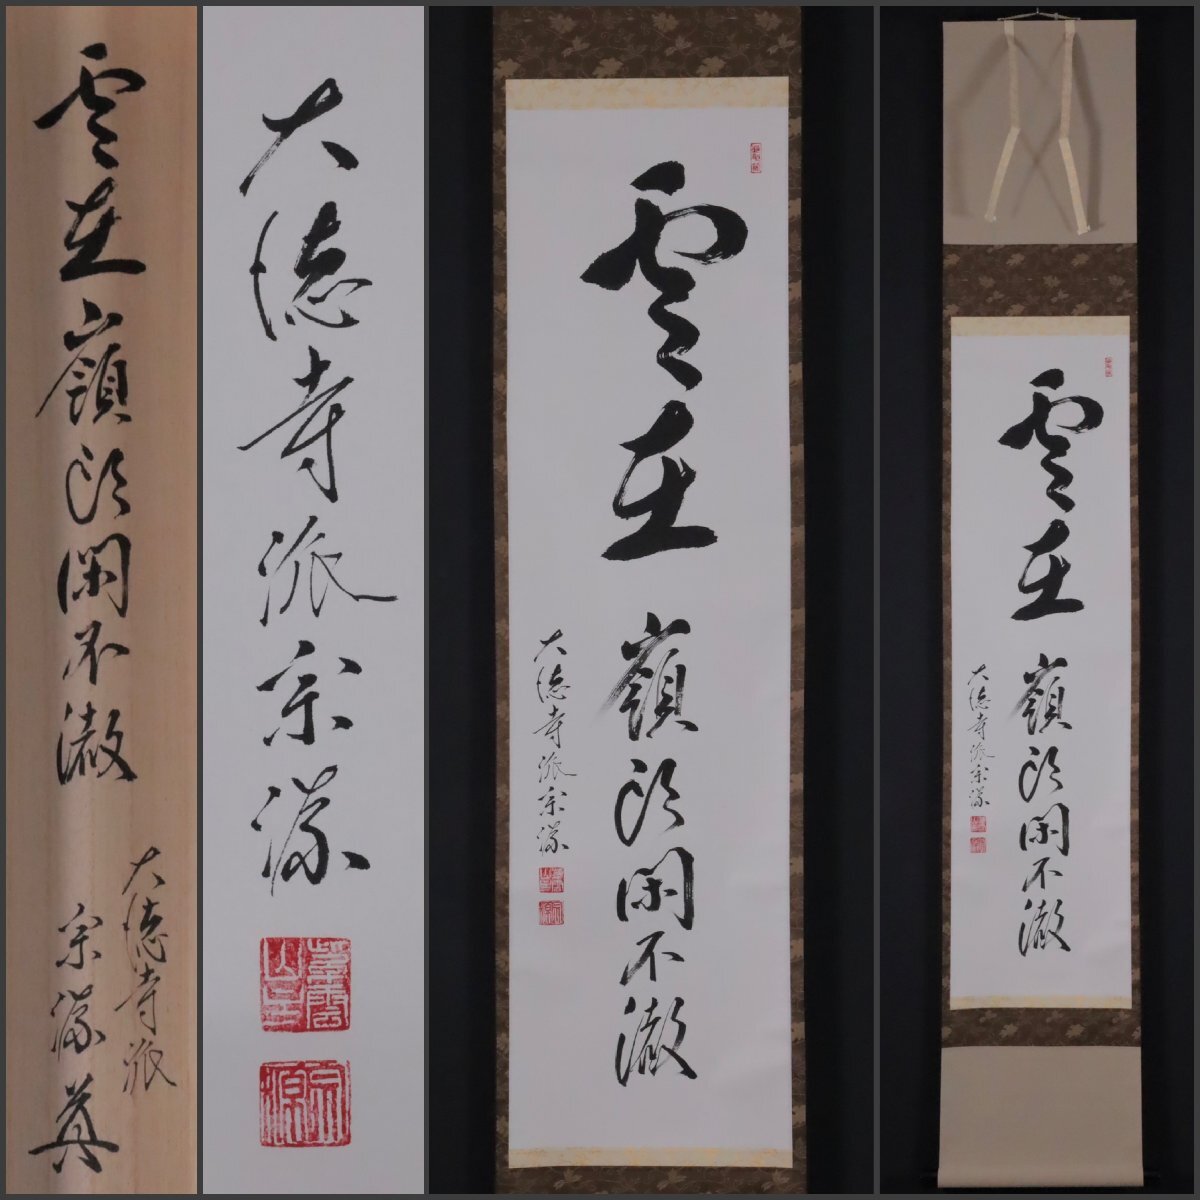 雲在嶺頭閑不徹
大徳寺派
宗源
大徳寺派宗源
雲在嶺頭閑不徹
大徳寺派宗源
雲在嶺頭閑不徹
大徳寺派宗源